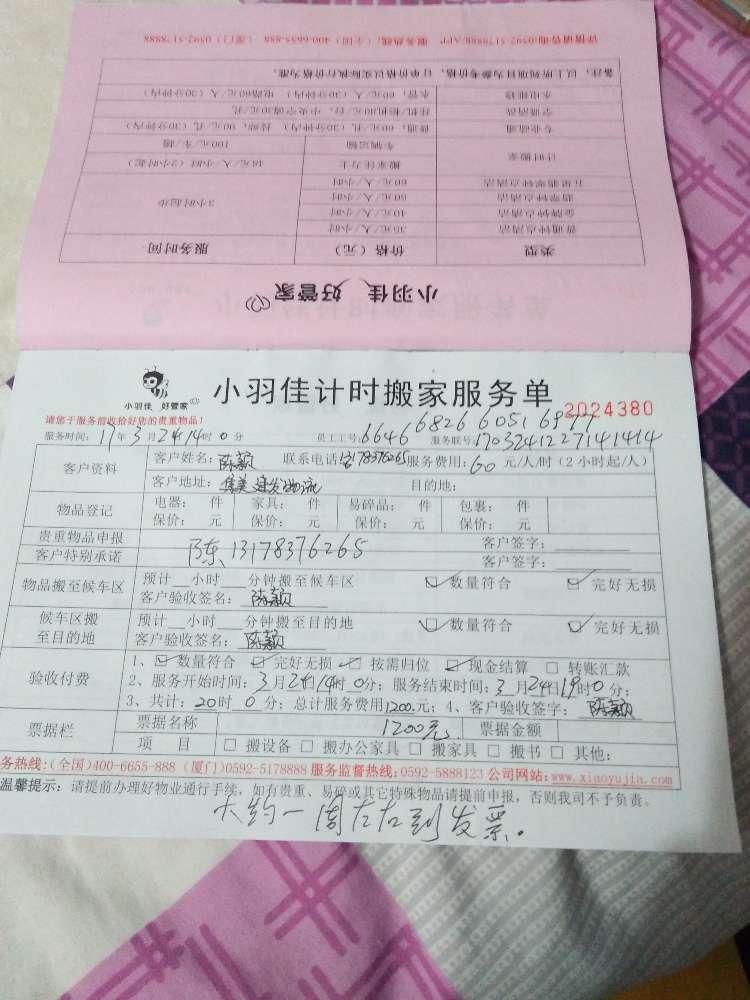 详情请咨询0592-5178888/APP 服务热线:(全国) 400-6655-888 (厦门) 0592-5178888
备注:以上所列项目为参考价格,订单价格以实际执行价格为准。
水电维修 水管:60元/人(30分钟内) 电路60元/人(30分钟内)
空调清洗 挂机/柜机80元/台,中央空调30元/孔
专业疏通 普通:60元/孔(30分钟内) 拉贴:90元/孔(30分钟内)
计时搬家 车辆运输 100元/车/趟
搬家佳力士 48元/人/小时(2小时起)
五星翡翠钟点清洁 60元/人/小时
翡翠钟点清洁 50元/人/小时
金牌钟点清洁 40元/人/小时 3小时起步
普通钟点清洁 35元/人/小时
类型 价格(元) 服务时间
小羽佳 好管家
小羽佳 好管家
小羽佳计时搬家服务单
2024380
请您于服务前收拾好您的贵重物品!
服务时间:17年3月24 14时0分 员工工号:6646 6826 6051 6977 服务联号:1703241227141414
客户资料 客户姓名:陈颖 联系电话 服务费用:60元/人/时(2小时起/人)
客户地址:集美建发物流 目的地:
物品登记 电器: 件 家具: 件 易碎品: 件 包裹: 件
保价: 元 保价: 元 保价: 元 保价: 元
贵重物品申报 客户签字:
客户特别承诺 陈 13178376265 客户签字:
物品搬至候车区 预计 小时 分钟搬至候车区 ☑数量符合 ☑完好无损
客户验收签名:陈颖
候车区搬至目的地 预计 小时 分钟搬至目的地 ☑数量符合 ☑完好无损
客户验收签名:陈颖
验收付费 1、☑数量符合 ☑完好无损 ☑按需归位 ☑现金结算 □转账汇款
2、服务开始时间:3月24日14时0分;服务结束时间:3月24日19时0分;
3、共计:20时0分;总计服务费用1200元;4、客户验收签字:陈颖
票据栏 票据名称 1200元 票据金额
项 目 □搬设备 □搬办公家具 □搬家具 □搬书 □其他:
务热线:(全国)400-6655-888 (厦门)0592-5178888 服务监督热线:0592-5888123 公司网站:www.xiaoyujia.com
温馨提示:请提前办理好物业通行手续,如有贵重、易碎或其它特殊物品请提前申报,否则我司不予负责。
大约一周左右到发票。